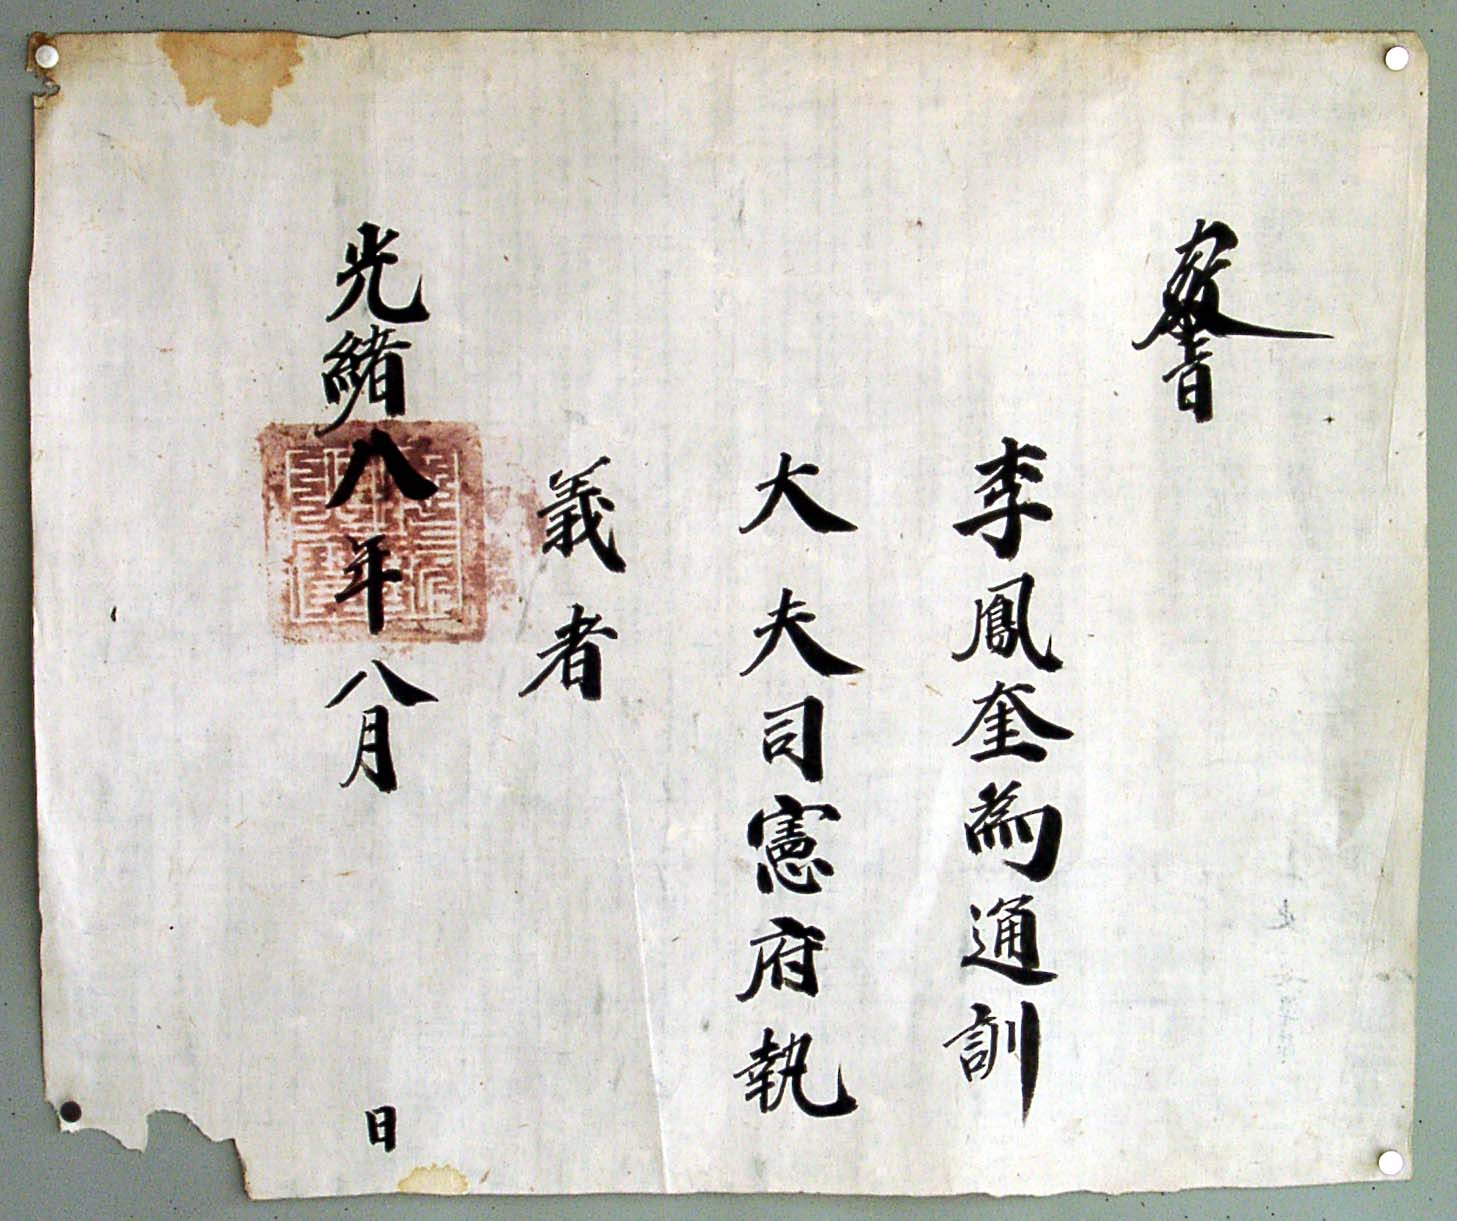 敎旨
李鳳奎爲通訓
大夫司憲府執
義者
光緒八年八月 日